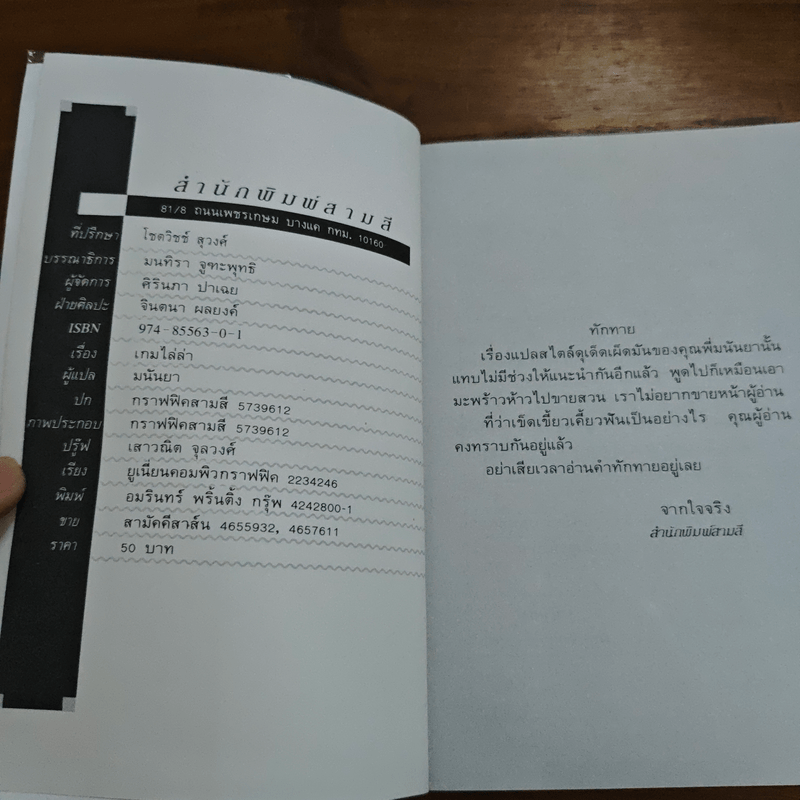 สำนักพิมพ์สามสี
81/8 ถนนเพชรเกษม บางแค กทม. 10160
ที่ปรึกษา โชตวิชช์ สุวงศ์
บรรณาธิการ มนทิรา จูฑะพุทธิ
ผู้จัดการ ศิรินภา ปาเฉย
ฝ่ายศิลปะ จินตนา ผลยงค์
ISBN 974-85563-0-1
เรื่อง เกมไล่ล่า
ผู้แปล มนันยา
ปก กราฟฟิคสามสี 5739612
ภาพประกอบ กราฟฟิคสามสี 5739612
ปรู๊ฟ เสาวณิต จุลวงศ์
เรียง ยูเนี่ยนคอมพิวกราฟฟิค 2234246
พิมพ์ อมรินทร์ พริ้นติ้ง กรุ๊พ 4242800-1
ขาย สามัคคีสาส์น 4655932, 4657611
ราคา 50 บาท
ทักทาย
เรื่องแปลสไตล์ดุเด็ดเผ็ดมันของคุณพี่มนันยานั้น
แทบไม่มีช่วงให้แนะนำกันอีกแล้ว พูดไปก็เหมือนเอา
มะพร้าวห้าวไปขายสวน เราไม่อยากขายหน้าผู้อ่าน
ที่ว่าเข็ดเขี้ยวเคี้ยวฟันเป็นอย่างไร คุณผู้อ่าน
คงทราบกันอยู่แล้ว
อย่าเสียเวลาอ่านคำทักทายอยู่เลย
จากใจจริง
สำนักพิมพ์สามสี